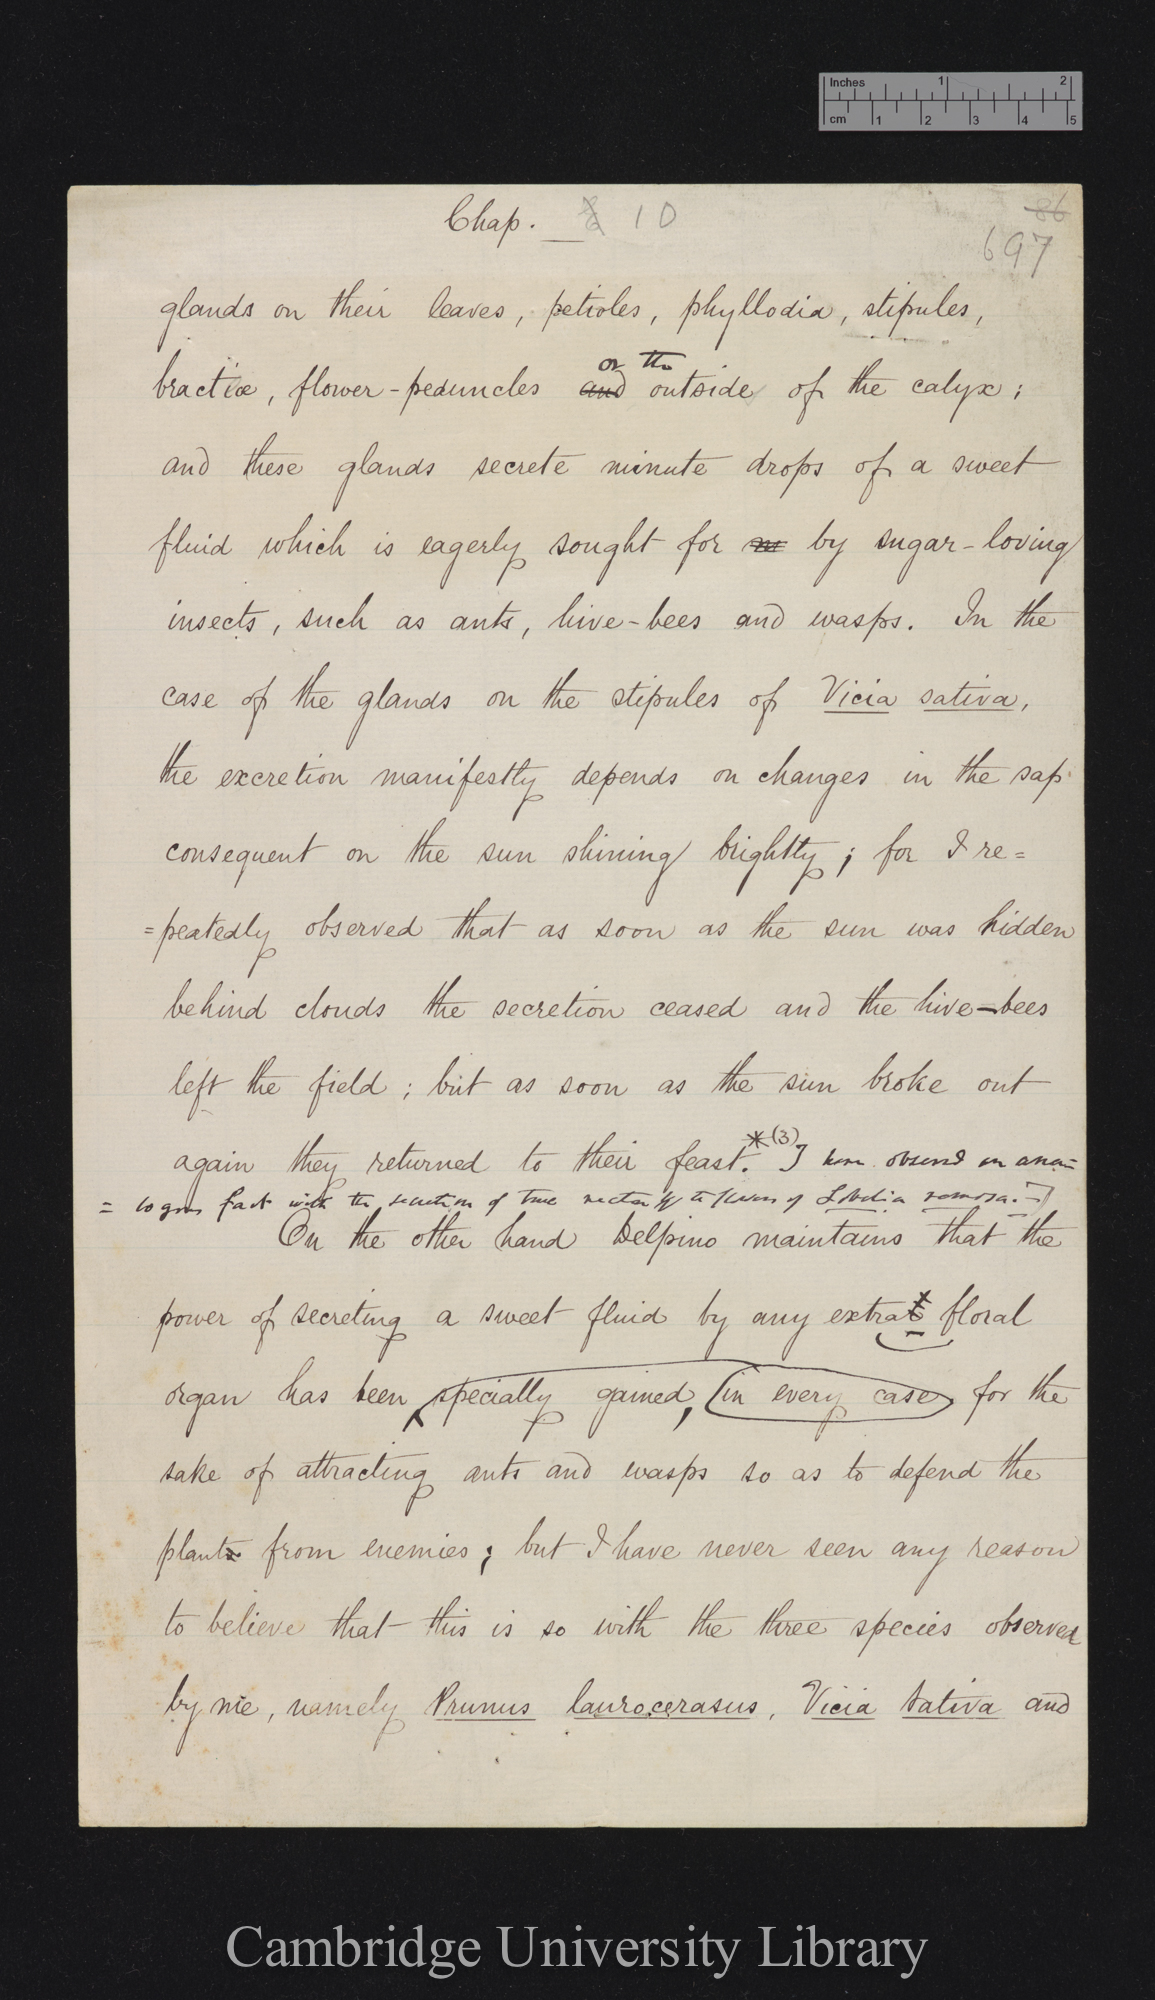 Inches 1 2
cm 1 2 3 4 5
Chap. 6 10
86
697
glands on their leaves, petioles, phyllodia, stipules,
or the
bracteæ, flower-peduncles and outside of the calyx;
and these glands secrete minute drops of a sweet
fluid which is eagerly sought for by sugar-loving
insects, such as ants, hive-bees and wasps. In the
case of the glands on the stipules of Vicia sativa,
the excretion manifestly depends on changes in the sap
consequent on the sun shining brightly; for I re=
=peatedly observed that as soon as the sun was hidden
behind clouds the secretion ceased and the hive-bees
left the field; but as soon as the sun broke out
again they returned to their feast.*(3) I have observed an ana=
=logous fact with the secretion of true nectar in the flowers of Lobelia
On the other hand Delpino maintains that the
power of secreting a sweet fluid by any extra floral
organ has been specially gained, (in every case) for the
sake of attracting ants and wasps so as to defend the
plants from enemies; but I have never seen any reason
to believe that this is so with the three species observed
by me, namely Prunus laurocerasus, Vicia sativa and
Cambridge University Library